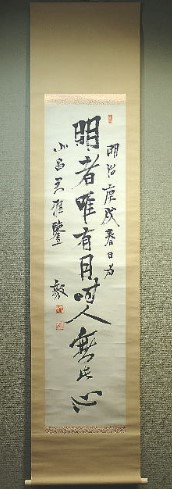 明治庚戌春日為
明者唯有月時人無此心
君雅鑒
毅